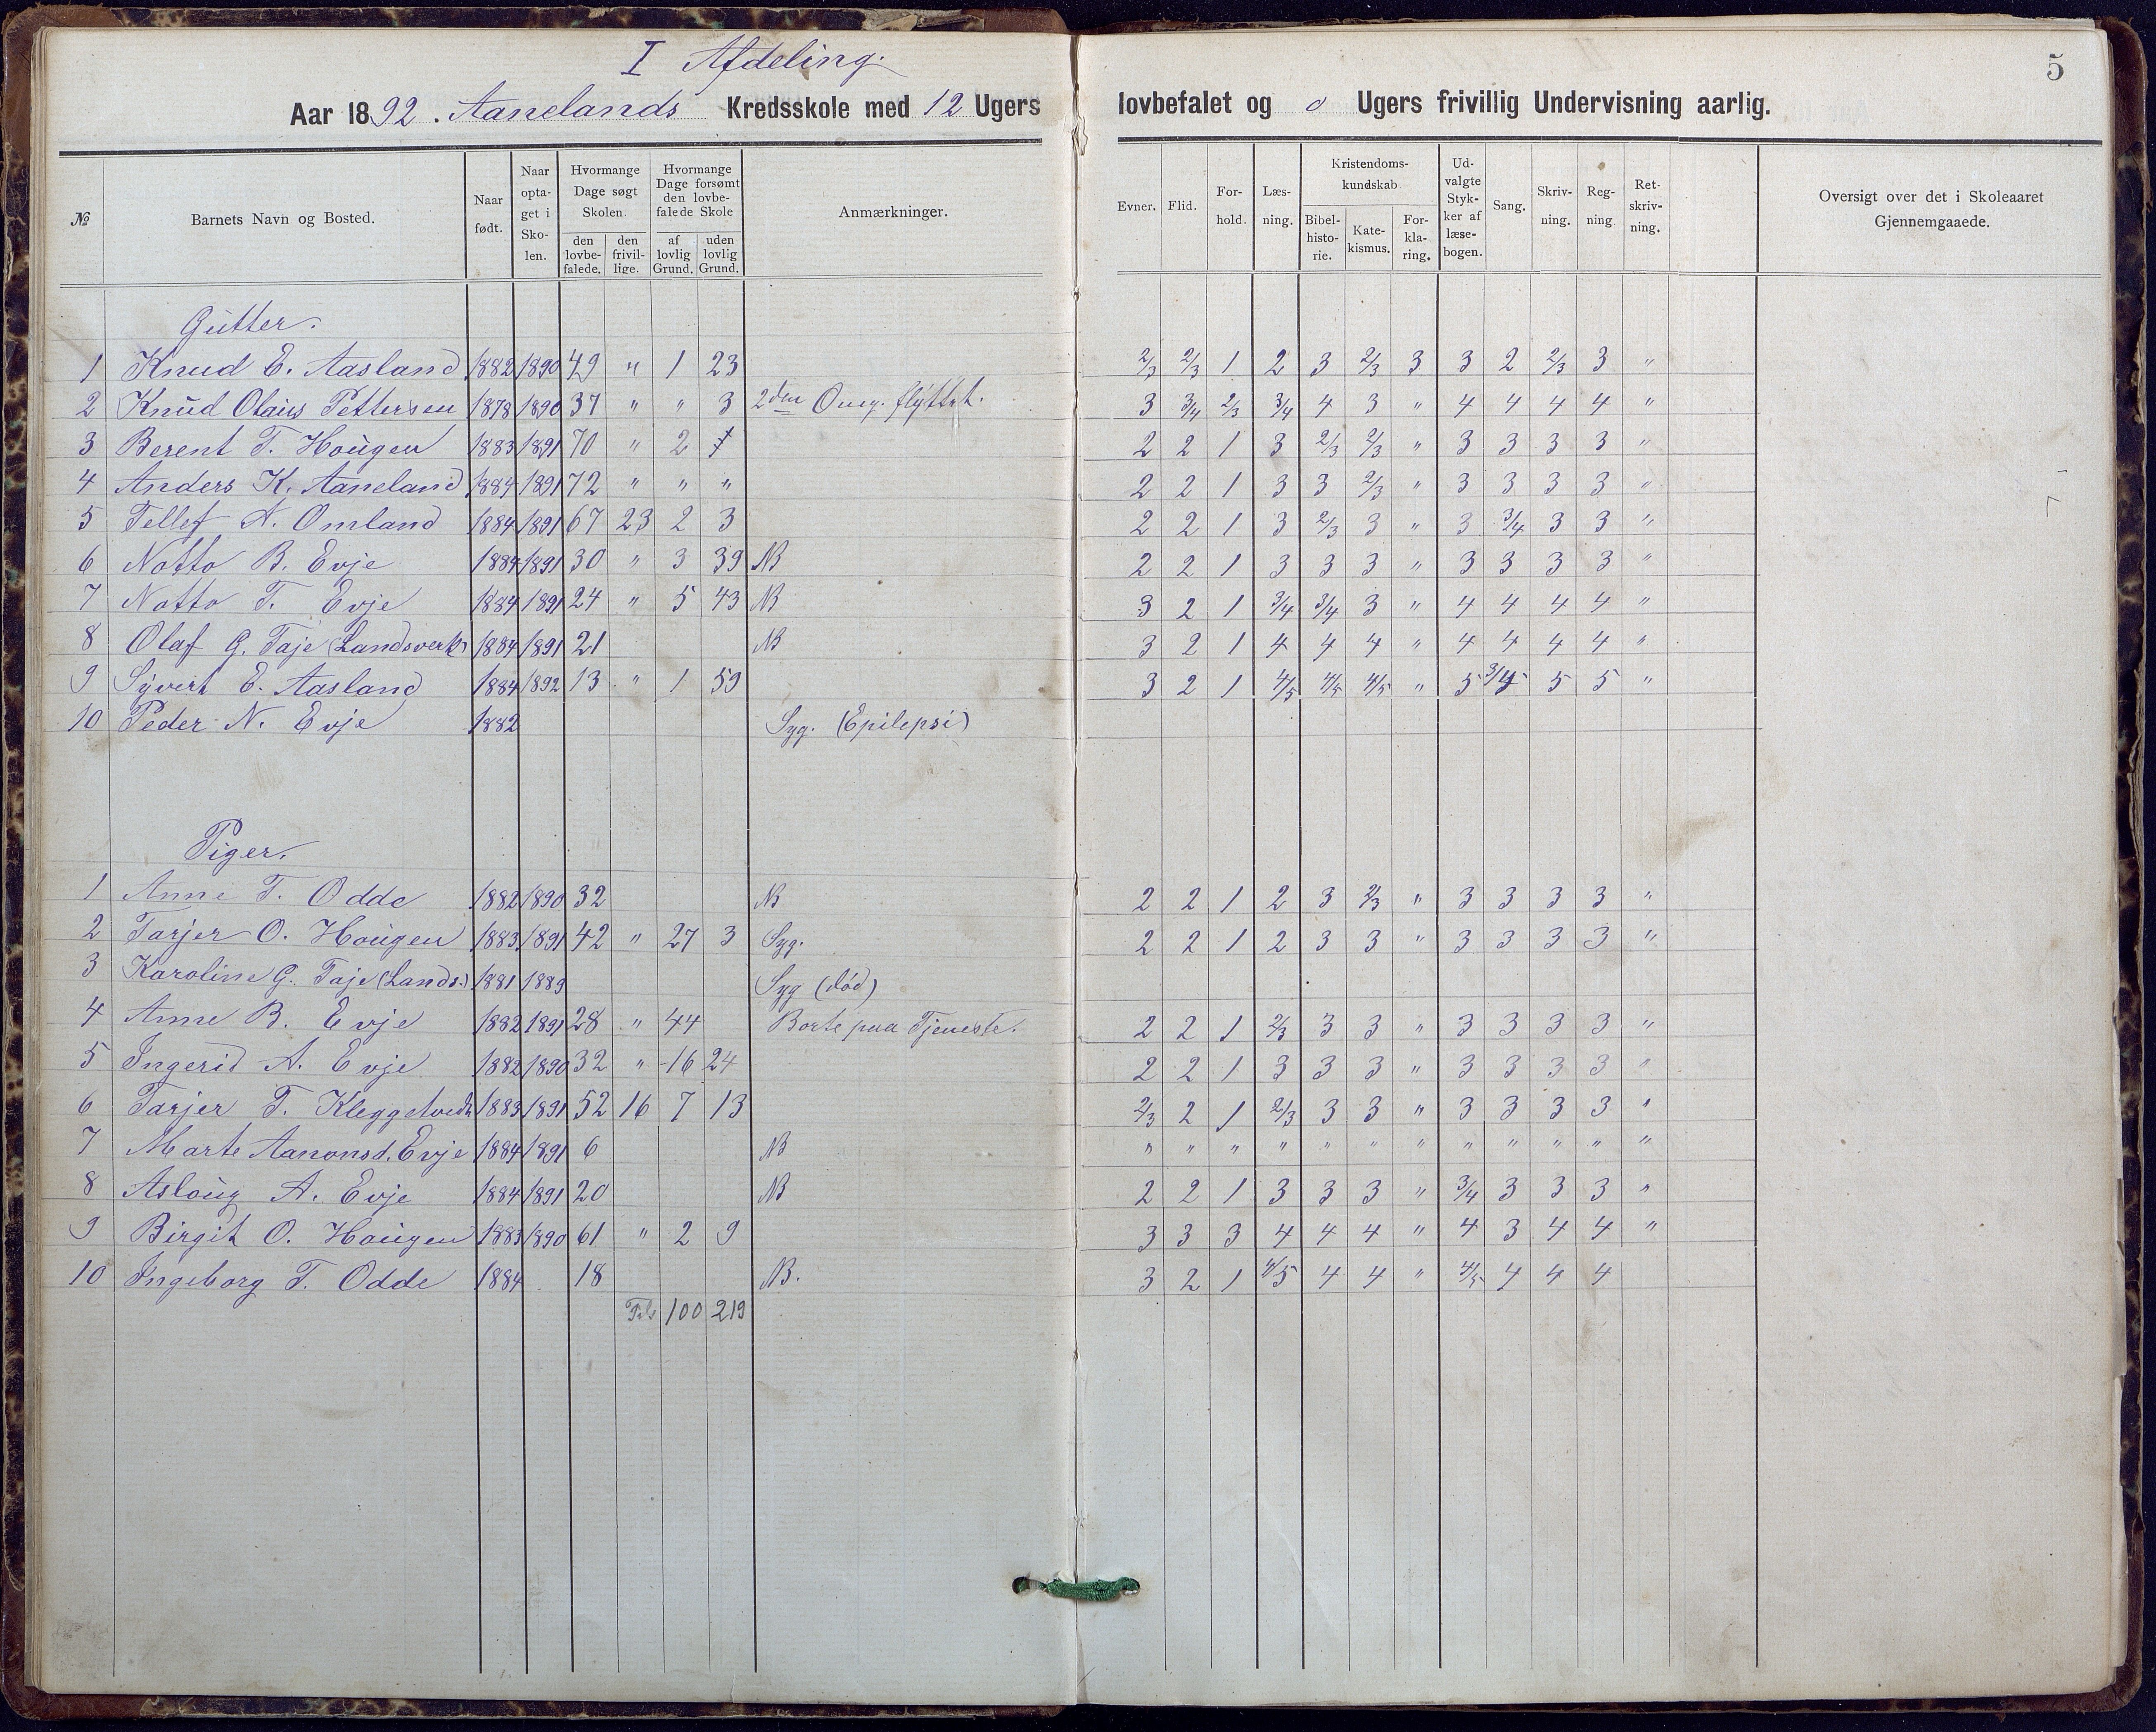 I Afdeling.
5
Aar 1892. Aanelands Kredsskole med 12 Ugers lovbefalet og 0 Ugers frivillig Undervisning aarlig.
№ Barnets Navn og Bosted. Naar født. Naar optaget i Skolen. Hvormange Dage søgt Skolen. den lovbefalede. den frivillige. Hvormange Dage forsømt den lovbefalede Skole af lovlig Grund. uden lovlig Grund. Anmærkninger. Evner. Flid. Forhold. Læsning. Kristendomskundskab Bibelhistorie. Katekismus. Forklaring. Udvalgte Stykker af læsebogen. Sang. Skrivning. Regning. Retskrivning. Oversigt over det i Skoleaaret Gjennemgaaede.
Gutter.
1 Knud E. Aasland 1882 1890 49 " 1 23 2/3 2/3 1 2 3 2/3 3 3 2 2/3 3 "
2 Knud Olaus Pettersen 1878 1890 37 " " 3 2den Omg. flyttet. 3 3/4 2/3 3/4 4 3 " 4 4 4 4 "
3 Berent T. Hougen 1883 1891 70 " 2 2 2 1 3 2/3 2/3 " 3 3 3 3 "
4 Anders K. Aaneland 1884 1891 72 " " " 2 2 1 3 3 2/3 " 3 3 3 3 "
5 Tellef A. Omland 1884 1891 67 23 2 3 2 2 1 3 2/3 3 " 3 3/4 3 3 "
6 Notto B. Evje 1884 1891 30 " 3 39 NB 2 2 1 3 3 3 " 3 3 3 3 "
7 Notto T. Evje 1884 1891 24 " 5 43 NB 3 2 1 3/4 3/4 3 " 4 4 4 4 "
8 Olaf G. Taje (Landsverk) 1884 1891 21 NB 3 2 1 4 4 4 " 4 4 4 4 "
9 Syvert E. Aasland 1884 1892 13 " 1 59 3 2 1 4/5 4/5 4/5 " 5 5 5 "
10 Peder N. Evje 1882 Syg. (Epilepsi)
Piger.
1 Anne T. Odde 1882 1890 32 NB 2 2 1 2 3 2/3 " 3 3 3 3 "
2 Tarjer O. Hougen 1883 1891 42 " 27 3 Syg. 2 2 1 2 3 3 " 3 3 3 3 "
3 Karoline G. Taje (Lands.) 1881 1889 Syg (død)
4 Anne B. Evje 1882 1891 28 " 44 Borte paa Tjeneste. 2 2 1 2/3 3 3 " 3 3 3 3 "
5 Ingerid A. Evje 1882 1890 32 " 16 24 2 2 1 3 3 3 " 3 3 3 3 "
6 Tarjer T. Kleggetvedt 1883 1891 52 16 7 13 2/3 2 1 2/3 3 3 " 3 3 3 3 "
7 Marte Aanonsd. Evje 1884 1891 6 NB " " " " " " " " " " " "
8 Asloug A. Evje 1884 1891 20 NB 2 2 1 3 3 3 " 3/4 3 3 3 "
9 Birgit O. Hougen 1883 1890 61 " 2 9 3 3 3 4 4 4 " 4 3 4 4 "
10 Ingeborg T. Odde 1884 18 NB. 3 2 1 4/5 4 4 " 4/5 4 4 4
100 219